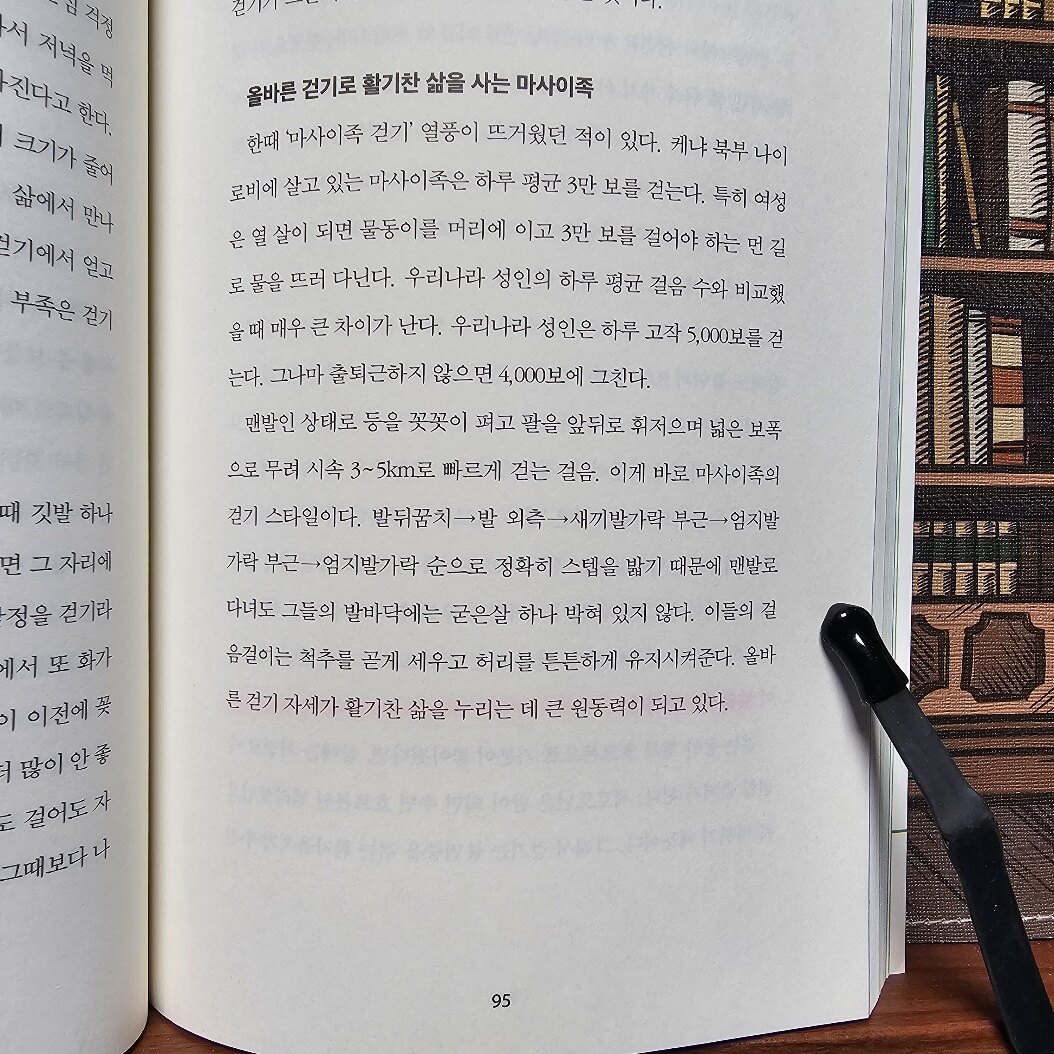 걱정
서 저녁을 먹
진다고 한다.
크기가 줄어
삶에서 만나
걷기에서 얻고
부족은 걷기
때 깃발 하나
면 그 자리에
정을 걷기라
에서 또 화가
이 이전에 꽃
더 많이 안 좋
도 걸어도 자
그때보다 나
올바른 걷기로 활기찬 삶을 사는 마사이족
한때 ‘마사이족 걷기’ 열풍이 뜨거웠던 적이 있다. 케냐 북부 나이
로비에 살고 있는 마사이족은 하루 평균 3만 보를 걷는다. 특히 여성
은 열 살이 되면 물동이를 머리에 이고 3만 보를 걸어야 하는 먼 길
로 물을 뜨러 다닌다. 우리나라 성인의 하루 평균 걸음 수와 비교했
을 때 매우 큰 차이가 난다. 우리나라 성인은 하루 고작 5,000보를 걷
는다. 그나마 출퇴근하지 않으면 4,000보에 그친다.
맨발인 상태로 등을 꼿꼿이 펴고 팔을 앞뒤로 휘저으며 넓은 보폭
으로 무려 시속 3~5km로 빠르게 걷는 걸음. 이게 바로 마사이족의
걷기 스타일이다. 발뒤꿈치→발 외측→새끼발가락 부근→엄지발
가락 부근→엄지발가락 순으로 정확히 스텝을 밟기 때문에 맨발로
다녀도 그들의 발바닥에는 굳은살 하나 박혀 있지 않다. 이들의 걸
음걸이는 척추를 곧게 세우고 허리를 튼튼하게 유지시켜준다. 올바
른 걷기 자세가 활기찬 삶을 누리는 데 큰 원동력이 되고 있다.
95